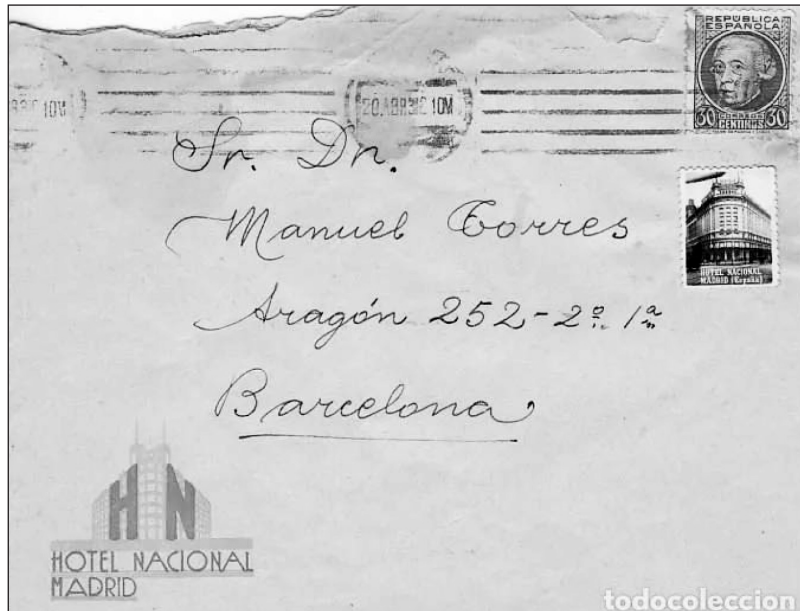 REPÚBLICA
ESPAÑOLA
30 CORREOS 30
CENTIMOS
20.ABR.3 10M
10M
Sr. Dn.
Manuel Torres
Aragón 252-2º. 1ª
Barcelona
HOTEL NACIONAL
MADRID (España)
HN
HOTEL NACIONAL
MADRID
todocoleccion